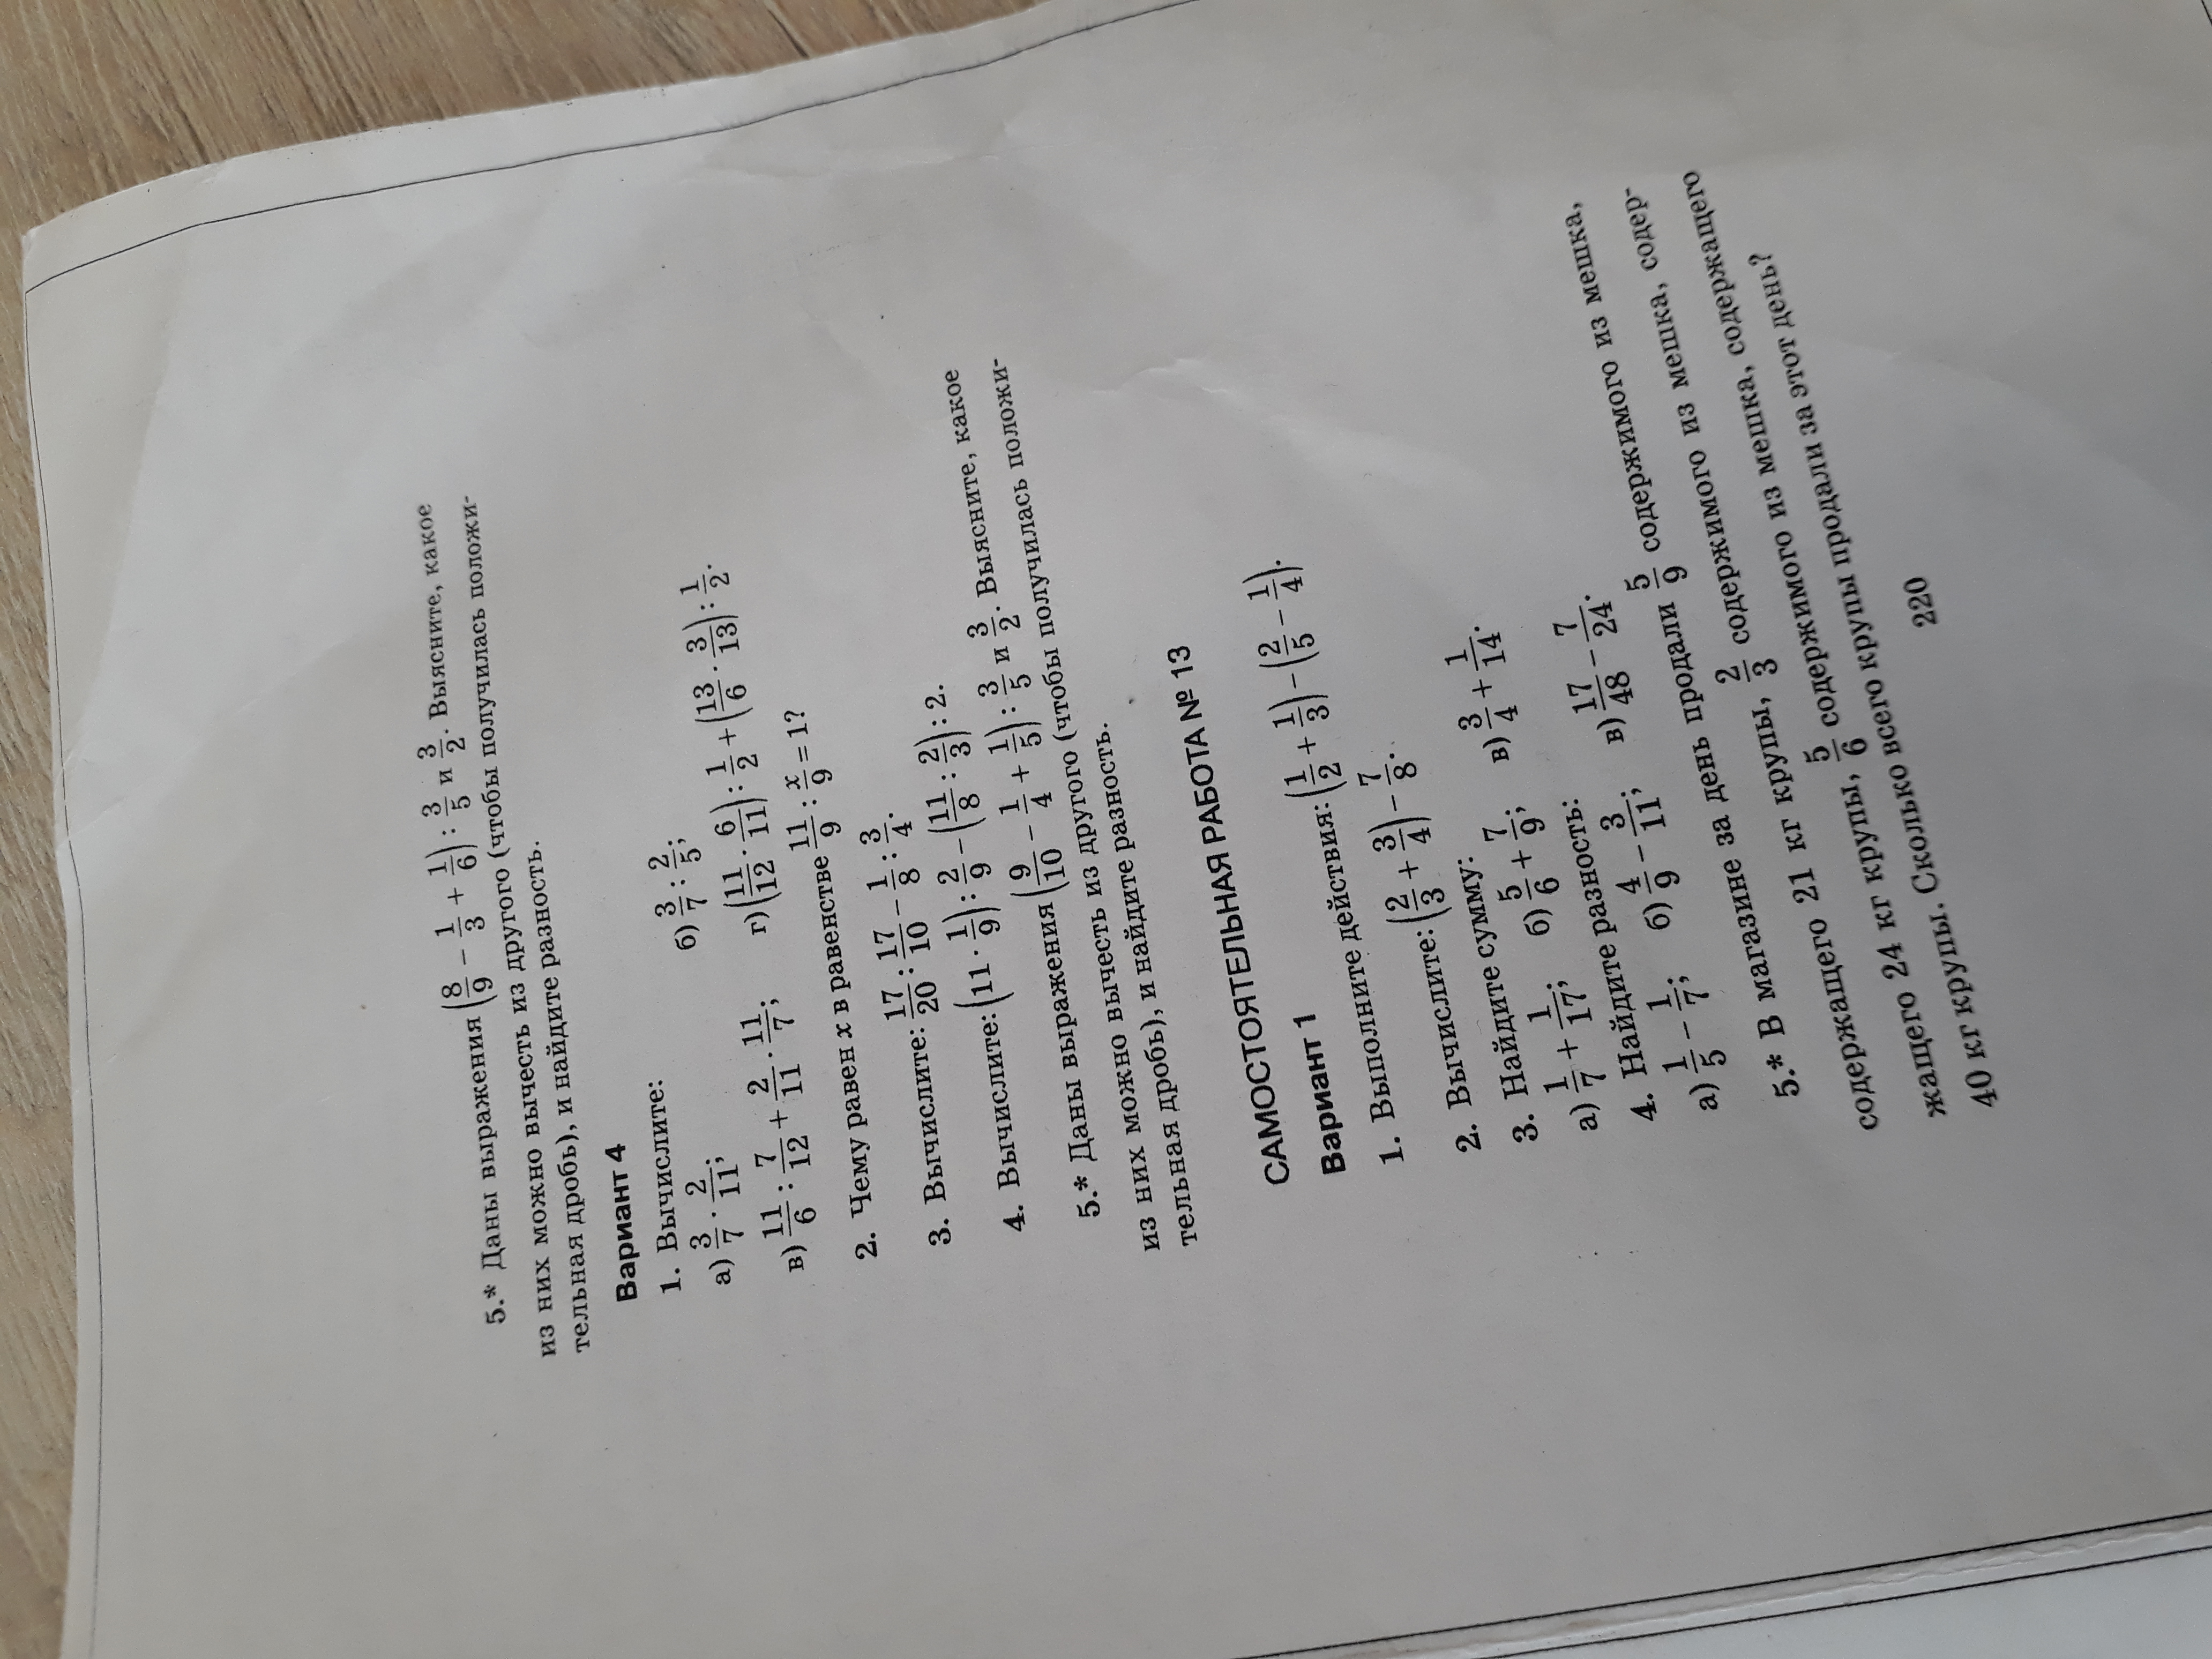 5.* Даны выражения (8/9 − 1/3 + 1/6) : 3/5 и 3/2. Выясните, какое
из них можно вычесть из другого (чтобы получилась положи-
тельная дробь), и найдите разность.
Вариант 4
1. Вычислите:
а) 3/7 · 2/11; б) 3/7 : 2/5;
в) 11/6 : 7/12 + 2/11 · 11/7; г) (11/12 · 6/11) : 1/2 + (13/6 · 3/13) : 1/2.
2. Чему равен x в равенстве 11/9 : x/9 = 1?
3. Вычислите: 17/20 : 17/10 − 1/8 : 3/4.
4. Вычислите: (11 · 1/9) : 2/9 − (11/8 : 2/3) : 2.
5.* Даны выражения (9/10 − 1/4 + 1/5) : 3/5 и 3/2. Выясните, какое
из них можно вычесть из другого (чтобы получилась положи-
тельная дробь), и найдите разность.
САМОСТОЯТЕЛЬНАЯ РАБОТА № 13
Вариант 1
1. Выполните действия: (1/2 + 1/3) − (2/5 − 1/4).
2. Вычислите: (2/3 + 3/4) − 7/8.
3. Найдите сумму:
а) 1/7 + 1/17; б) 5/6 + 7/9; в) 3/4 + 1/14.
4. Найдите разность:
а) 1/5 − 1/7; б) 4/9 − 3/11; в) 17/48 − 7/24.
5.* В магазине за день продали 5/9 содержимого из мешка,
содержащего 21 кг крупы, 2/3 содержимого из мешка, содер-
жащего 24 кг крупы, 5/6 содержимого из мешка, содержащего
40 кг крупы. Сколько всего крупы продали за этот день?
220